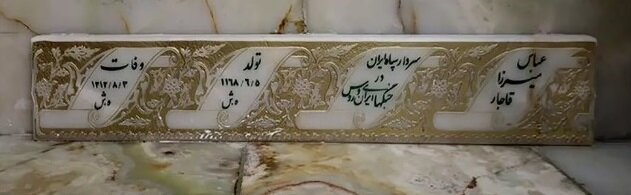 عباس
میرزا
قاجار
سردار سپاه ایران
در
جنگهای ایران و روس
تولد
۱۱۶۸/۶/۵
ه.ش
وفات
۱۲۱۲/۸/۳
ه.ش